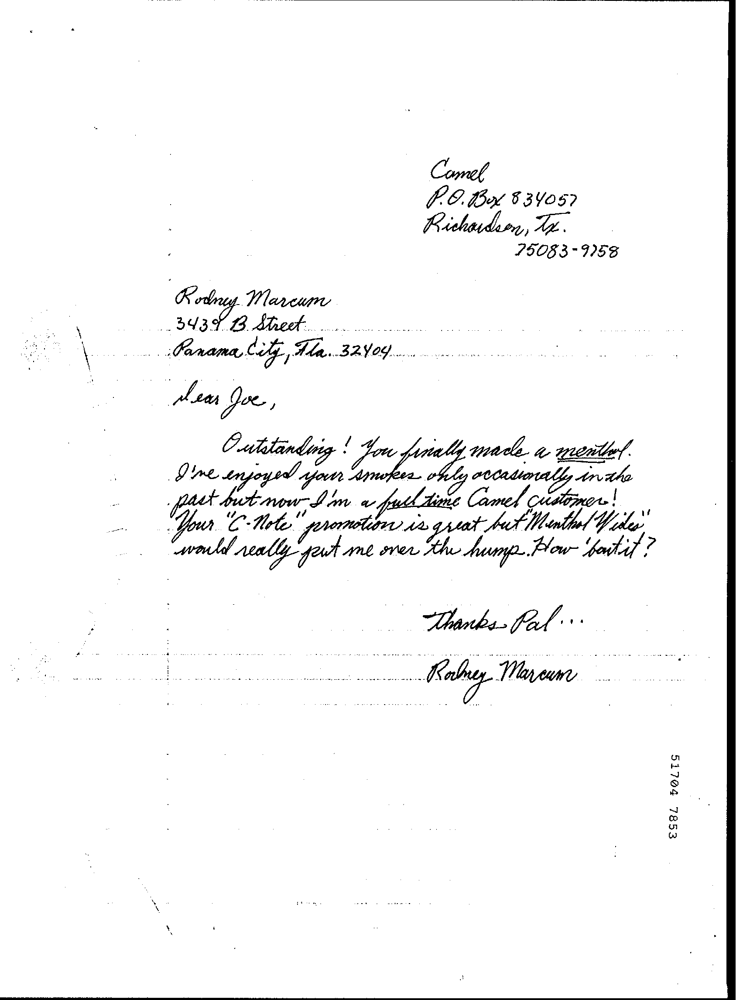 Camel
P.O. Box 834057
Richardson, Tx.
75083-9758
Rodney Marcum
3439 B Street
Panama City, Fla. 32404
Dear Joe,
Outstanding! You finally made a menthol.
I've enjoyed your smokes only occasionally in the
past but now I'm a full time Camel customer!
Your "C-Note" promotion is great but "Menthol Wides"
would really put me over the hump. How 'bout it?
Thanks Pal...
Rodney Marcum
51704 7853